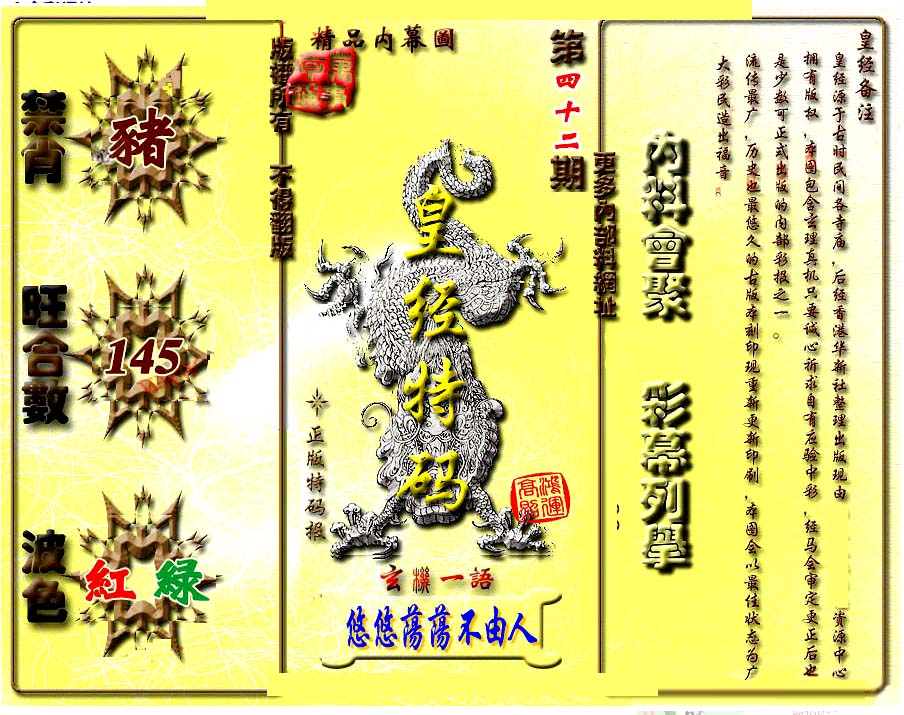 精品内幕圖
第四十二期
版權所有 不得翻版
更多内部料網址
禁肖
豬
旺合數
145
波色
紅 綠
皇经特码
正版特码报
鴻運高照
玄機一語
悠悠蕩蕩不由人
内料會聚
彩幕列舉
皇经备注
皇经源于古时民间各寺庙，后经香港华新社整理出版现由 资源中心
拥有版权，本图包含玄理真机只要诚心祈求自有应验中彩，经马会审定更正后也
是少数可正式出版的内部彩报之一。
流传最广，历史也最悠久的古版本刻印现重新更新印刷，本图会以最佳状态为广
大彩民造出福音